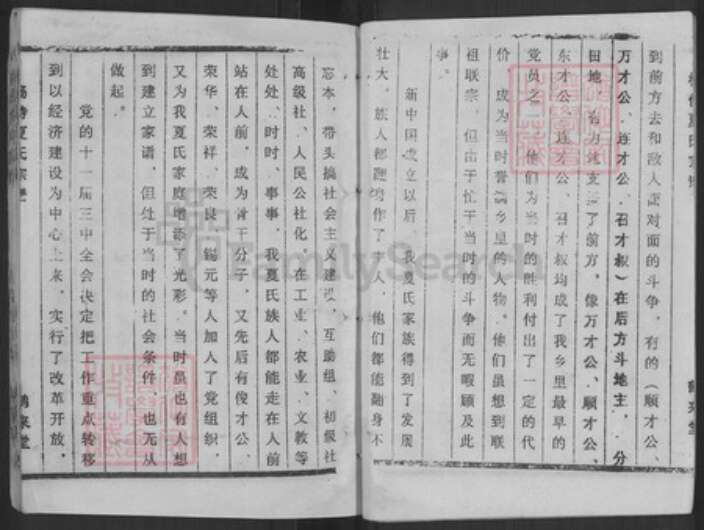 到前方去和敌人面对面的斗争，有的（顺才公、
万才公、连才公、召才叔）在后方斗地主，分
田地，有力地支援了前方。像万才公、顺才公、
东才公、连才公、召才叔均成了我乡里最早的
党员之一，他们为当时的胜利付出了一定的代
价，成为当时誉满乡里的人物。他们虽想到联
祖联宗，但由于忙于当时的斗争而无暇顾及此
事。
新中国成立以后，我夏氏家族得到了发展
壮大，族人都翻身作了主人，他们都能翻身不
忘本，带头搞社会主义建设，互助组、初级社、
高级社、人民公社化。在工业、农业、文教等
处处、时时、事事，我夏氏族人都能走在人前
站在人前，成为骨干分子，又先后有俊才公、
荣华、荣祥、荣良、锡元等人加入了党组织，
又为我夏氏家庭增添了光彩。当时虽也有人想
到建立家谱，但处于当时的社会条件，也无从
做起。
党的十一届三中全会决定把工作重点转移
到以经济建设为中心上来，实行了改革开放，
夏氏宗谱
鹤来堂
FamilySearch